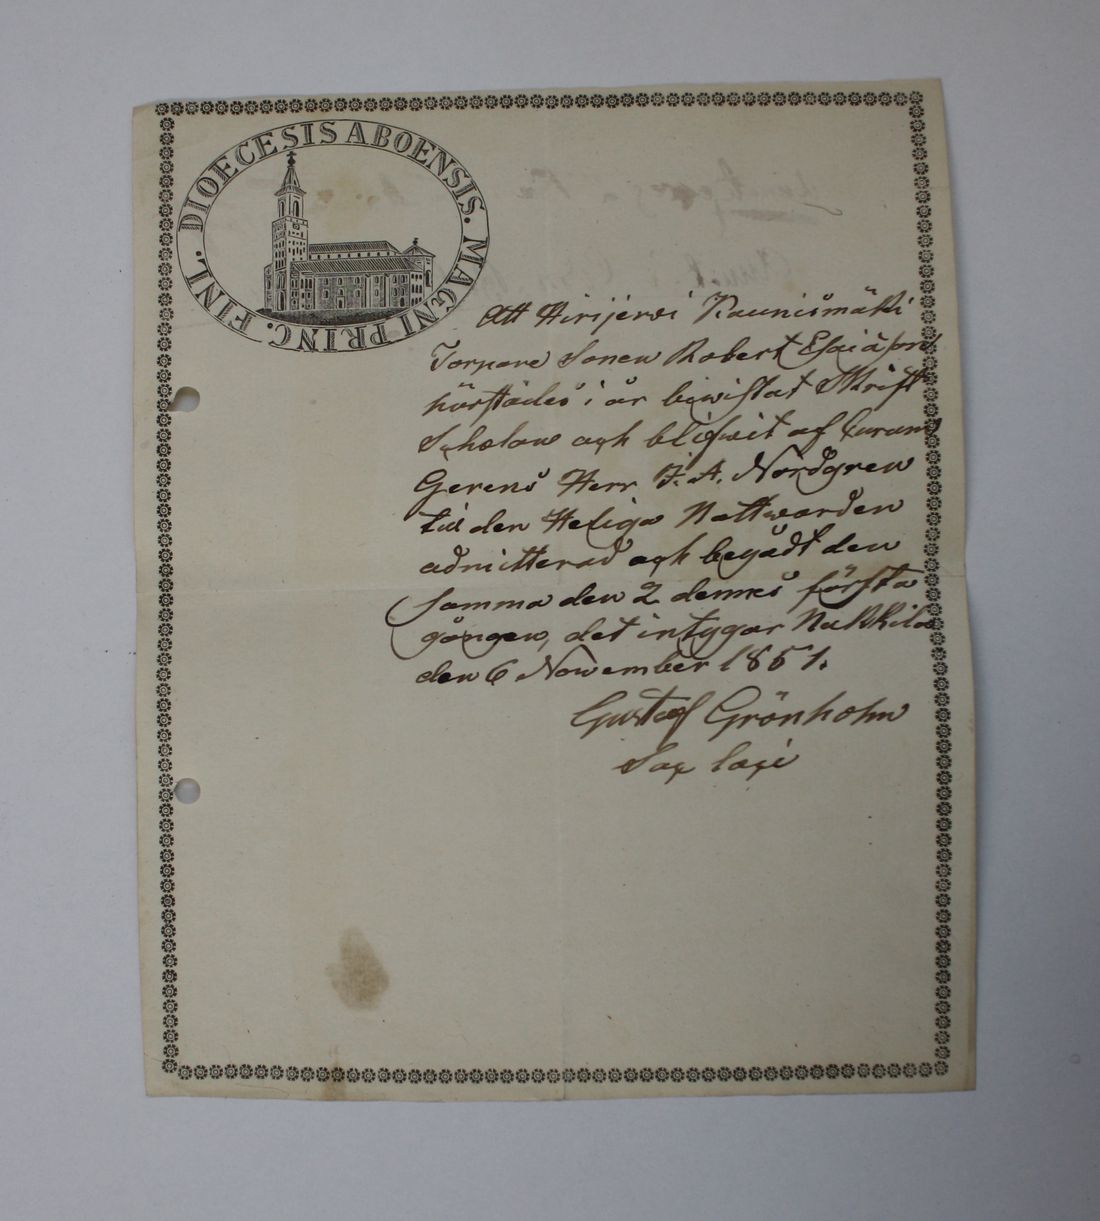 DIOECESIS ABOENSIS. MAGNI PRINC. FINL.
Att Hirijervi Kaunismäki
Torpare Sonen Robert Esaiasson
härstädes i år bewistat Skrift
Scholan och blifwit af Curam
Gerens Herr F. A. Nordgren
till den Heliga Nattwarden
admitterad och begådt den
samma den 2 dennes första
gången, det intygar Nakkila
den 6 November 1851.
Gustaf Grönholm
Sac laci